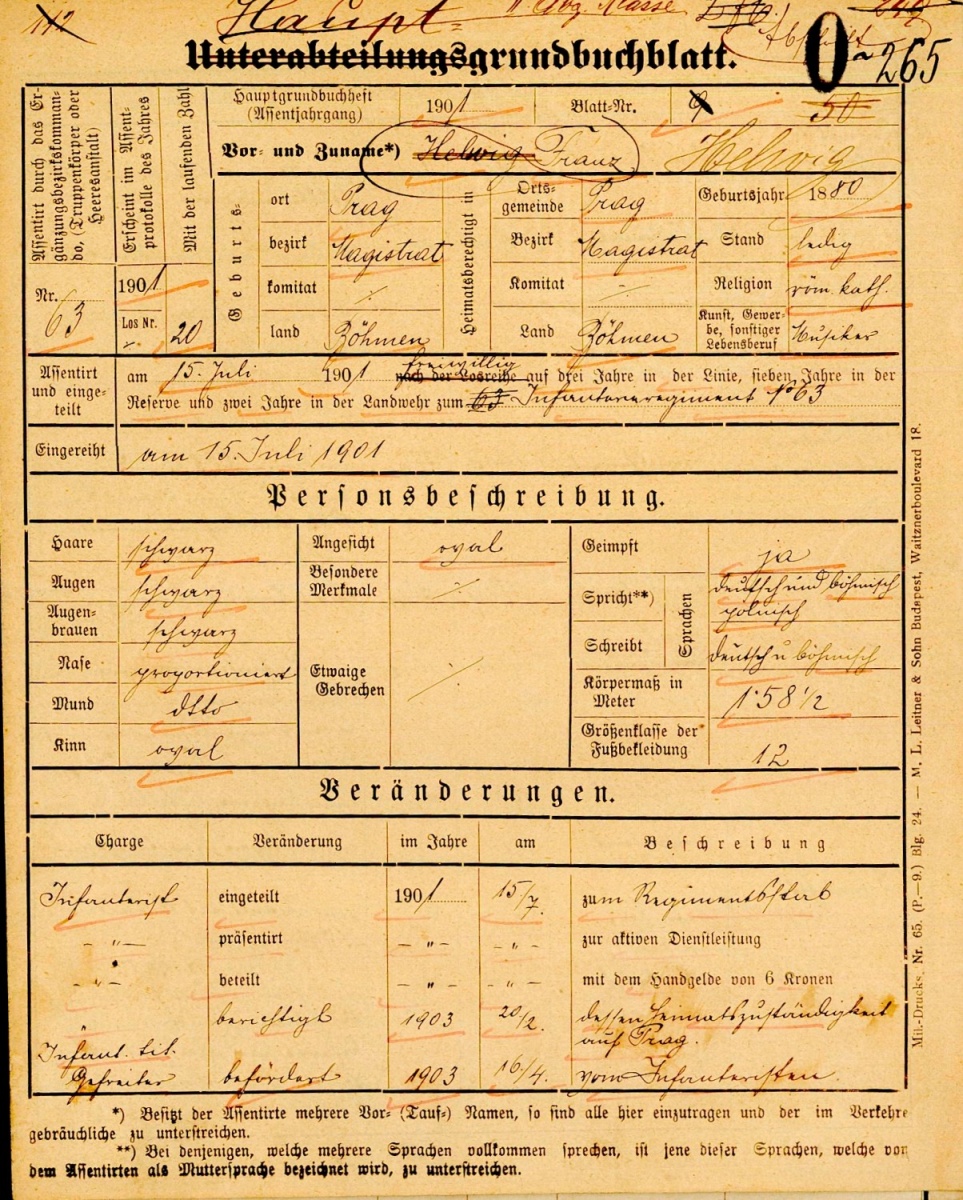 112
Haupt-
II. Abg. Klasse
Unterabteilungsgrundbuchblatt.
0 - 265
Assentirt durch das Ergänzungsbezirkskommando, (Truppenkörper oder Heeresanstalt)
Erscheint im Assentprotokolle des Jahres
Mit der laufenden Zahl
Nr. 63
1901
Los Nr. ./.
20
Hauptgrundbuchheft (Assentjahrgang) 1901 Blatt-Nr. 9 50
Vor- und Zuname*) Helwig Franz Helwig
Geburts-
ort Prag
bezirk Magistrat
komitat ./.
land Böhmen
Heimatsberechtigt in
Ortsgemeinde Prag
Bezirk Magistrat
Komitat ./.
Land Böhmen
Geburtsjahr 1880
Stand ledig
Religion röm. kath.
Kunst, Gewerbe, sonstiger Lebensberuf Musiker
Assentirt und eingeteilt
freiwillig
am 15. Juli 1901 nach der Losreihe auf drei Jahre in der Linie, sieben Jahre in der
Reserve und zwei Jahre in der Landwehr zum 63 Infanterieregiment No 63
Eingereiht am 15. Juli 1901
Personsbeschreibung.
Haare schwarz
Augen schwarz
Augenbrauen schwarz
Nase proportioniert
Mund dtto
Kinn oval
Angesicht oval
Besondere Merkmale ./.
Etwaige Gebrechen ./.
Geimpft ja
Spricht**) Sprachen deutsch und böhmisch
polnisch
Schreibt deutsch u böhmisch
Körpermaß in Meter 1·58 1/2
Größenklasse der Fußbekleidung 12
Veränderungen.
Charge Veränderung im Jahre am Beschreibung
Infanterist eingeteilt 1901 15/7. zum Regimentsstab
- " - präsentirt - " - - " - zur aktiven Dienstleistung
- " - beteilt - " - - " - mit dem Handgelde von 6 Kronen
" berichtigt 1903 20/2. dessen Heimatszuständigkeit
auf Prag.
Infant. tit.
Gefreiter befördert 1903 16/4. vom Infanteristen.
*) Besitzt der Assentirte mehrere Vor- (Tauf-) Namen, so sind alle hier einzutragen und der im Verkehre
gebräuchliche zu unterstreichen.
**) Bei denjenigen, welche mehrere Sprachen vollkommen sprechen, ist jene dieser Sprachen, welche von
dem Assentirten als Muttersprache bezeichnet wird, zu unterstreichen.
Mil.-Drucks. Nr. 65. (P.—9.) Blg. 24. — M. L. Leitner & Sohn Budapest, Waitznerboulevard 18.